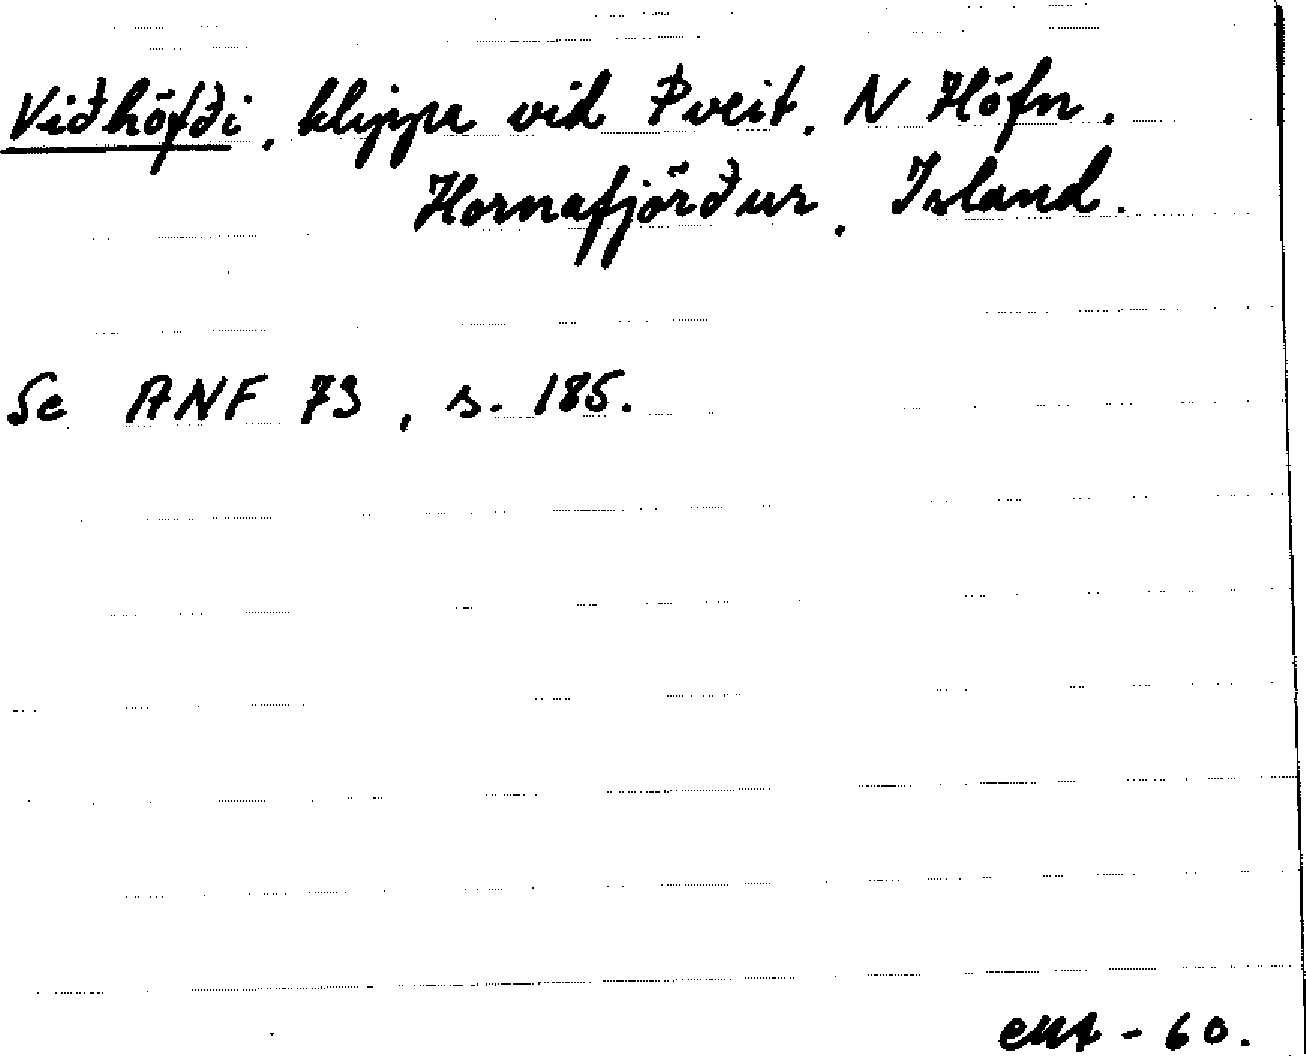 Viðhöfði, klippa vid Þveit, N Höfn,
Hornafjörður, Island.
Se ANF 73, s. 185.
- 60.